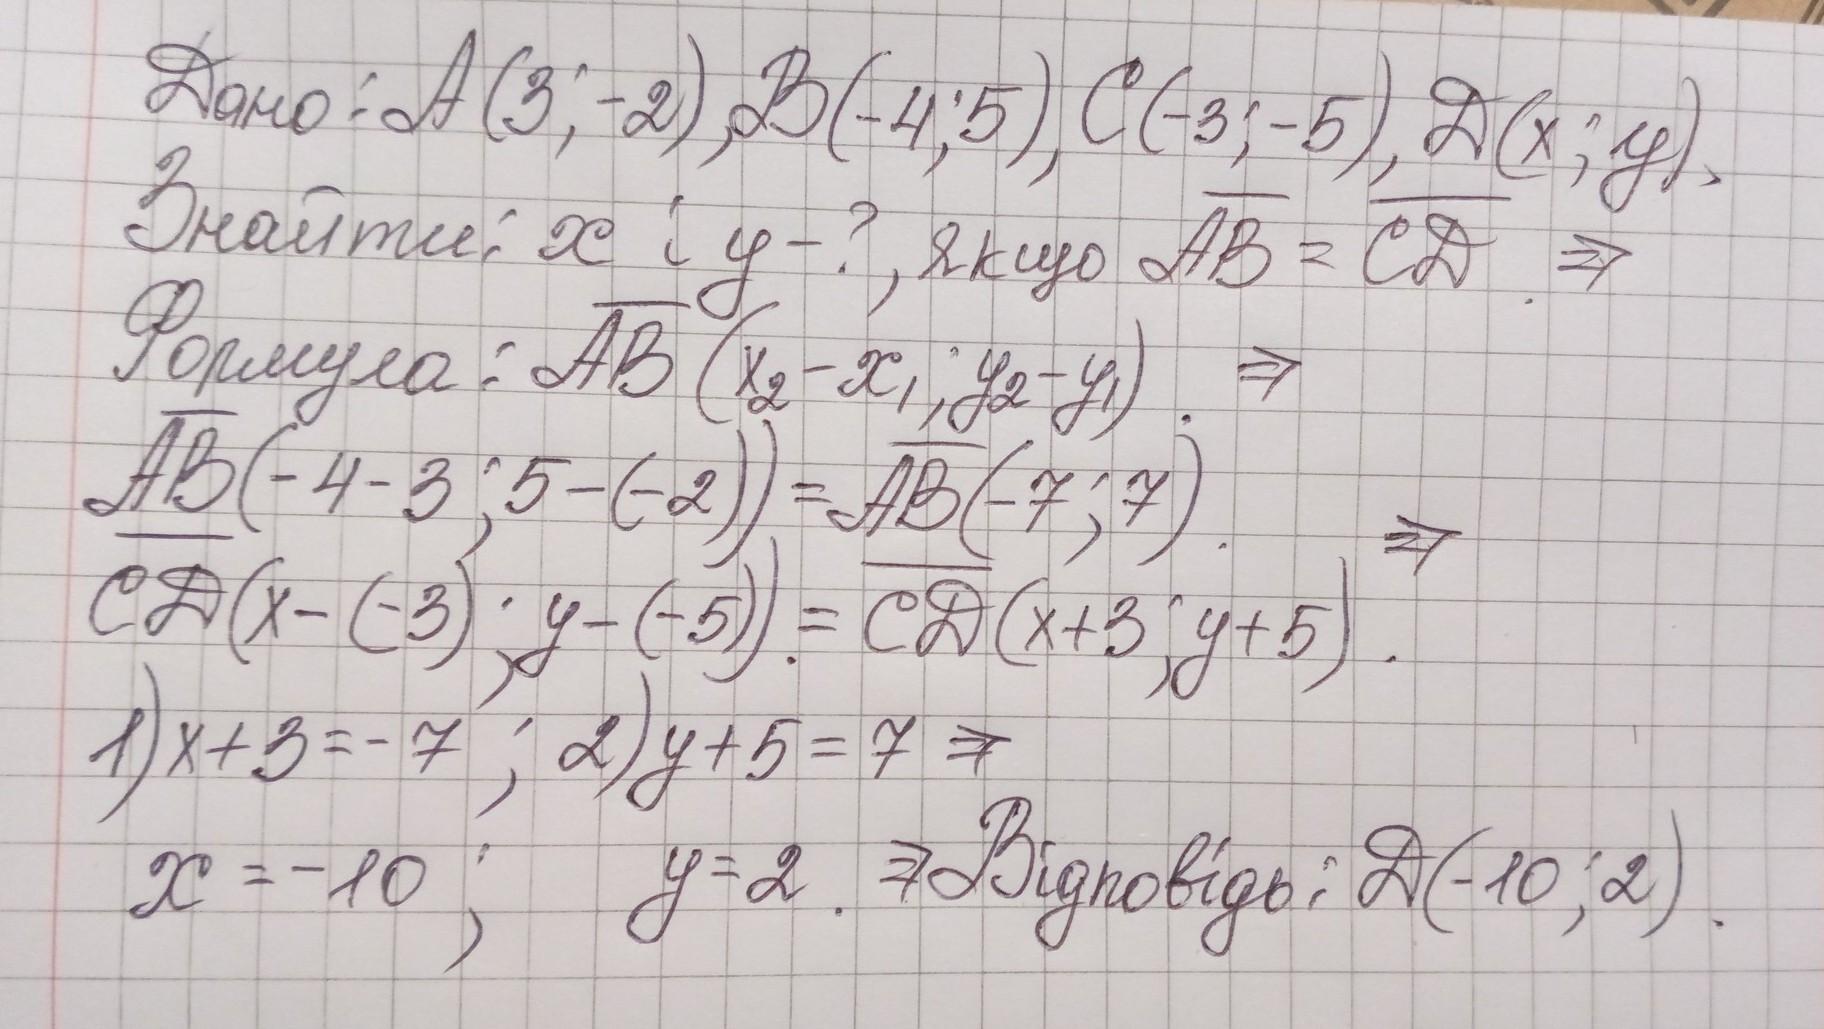 Дано: A(3; -2), B(-4; 5), C(-3; -5), D(x; y).
Знайти: x і y - ?, якщо A̅B̅ = C̅D̅. ⇒
Формула: A̅B̅ (x₂ - x₁; y₂ - y₁). ⇒
A̅B̅(-4 - 3; 5 - (-2)) = A̅B̅(-7; 7). ⇒
C̅D̅(x - (-3); y - (-5)). = C̅D̅(x + 3; y + 5).
1) x + 3 = -7; 2) y + 5 = 7 ⇒
x = -10; y = 2. ⇒ Відповідь: D(-10; 2).